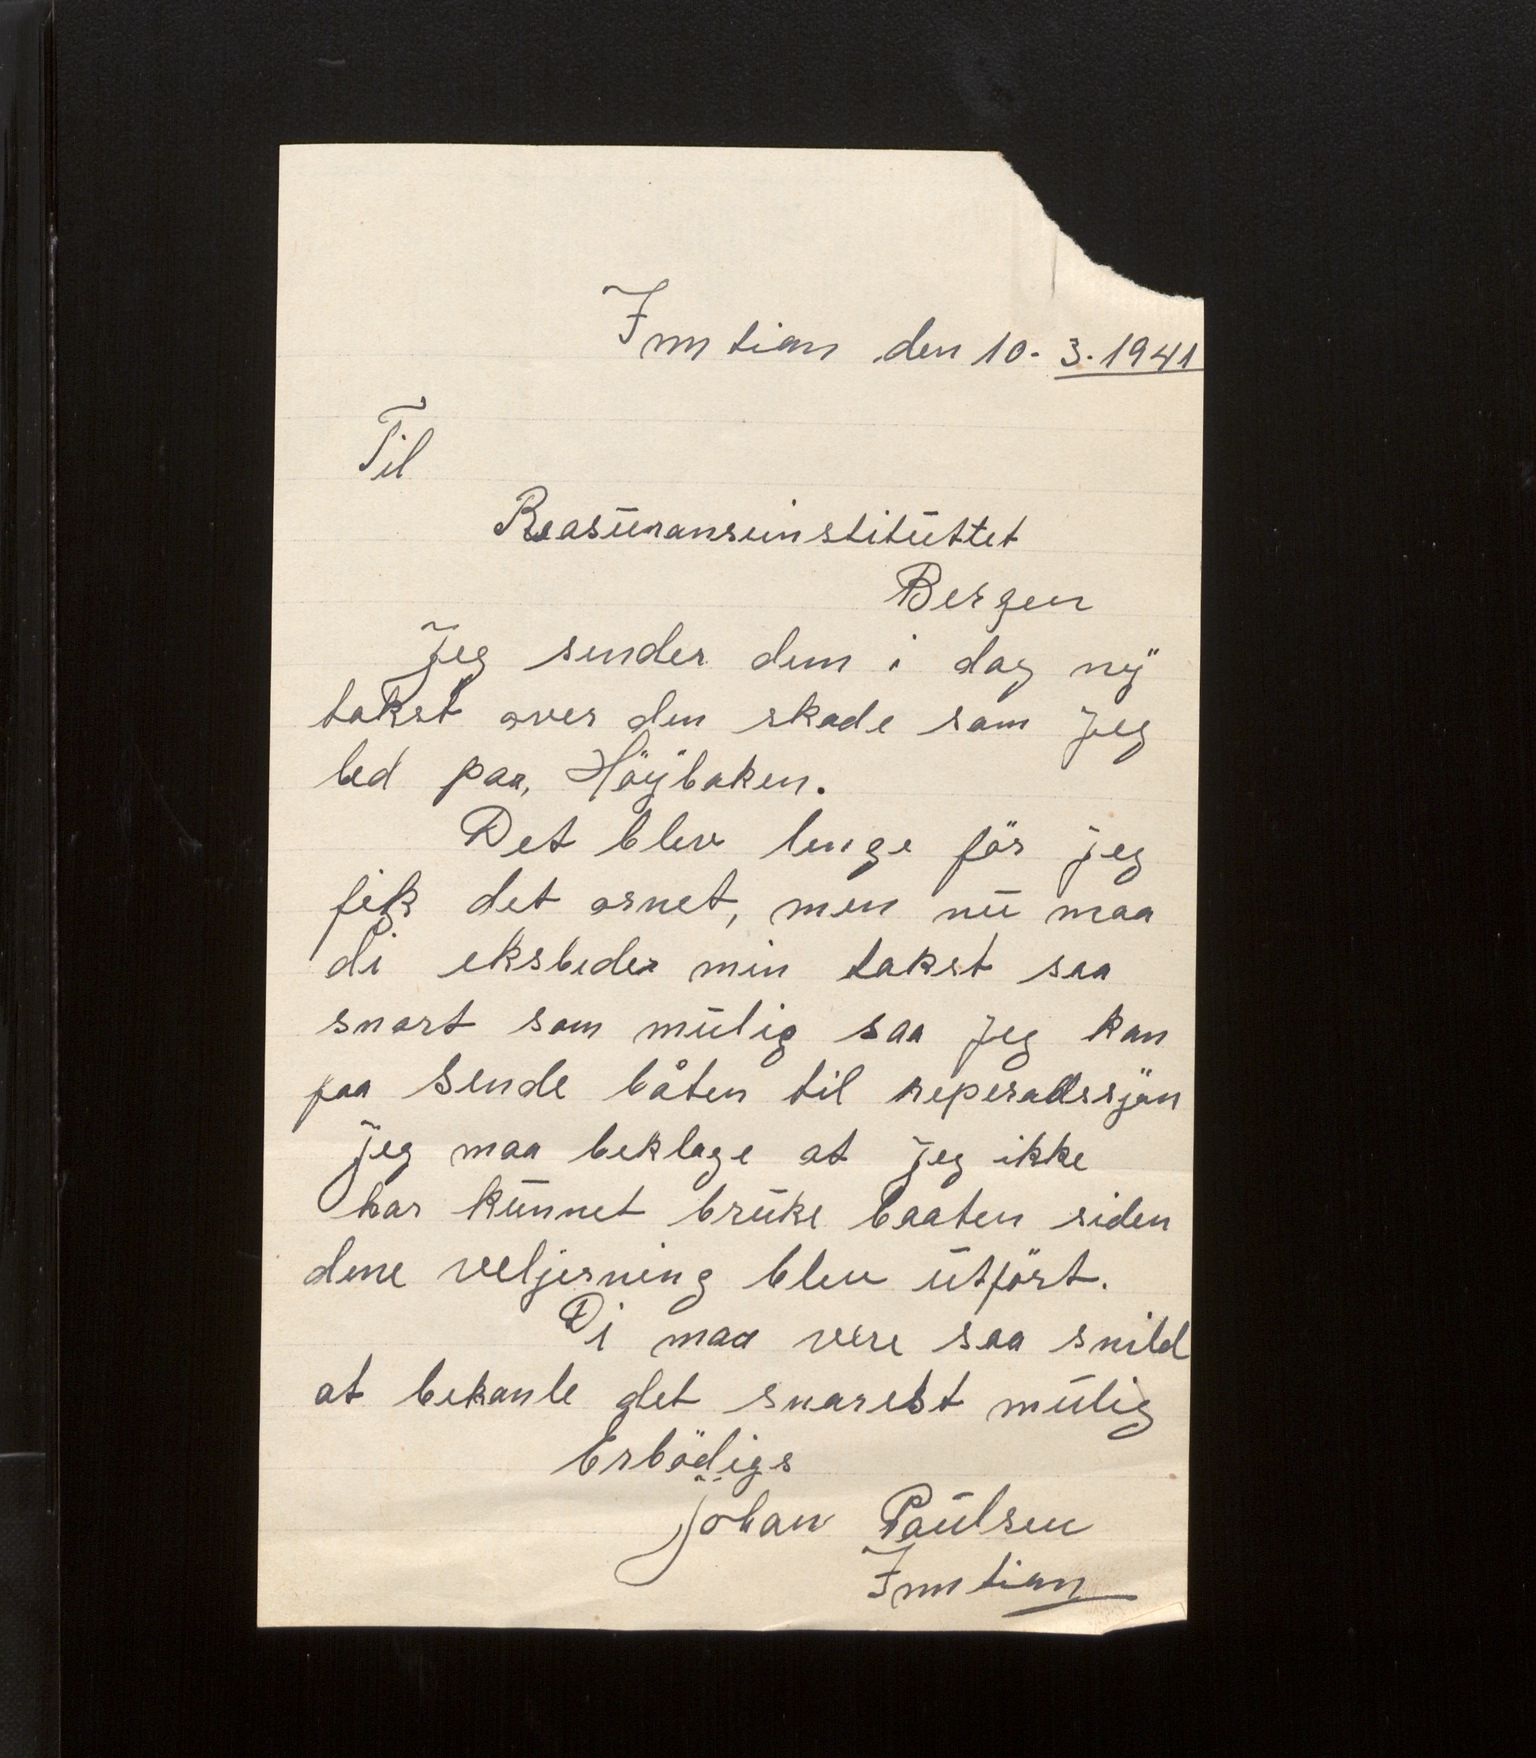 Imntian den 10. 3. 1941
Til
Reasüranseinstitüttet
Bergen
Jeg sender dem i dag nÿ
takst over den skade som jeg
led paa, Höÿbaken.
Det blev lenge för jeg
fik det ornet, men nü maa
di eksbeder min takst saa
snart som mülig saa jeg kan
faa sende båten til reperadssjön
Jeg maa beklage at jeg ikke
har künnet brüke baaten siden
dene veljerning blev ütfört.
Di maa vere saa snild
at bekanle det snarest mülig
Erbödigs
Johan Paülsen
Imntian